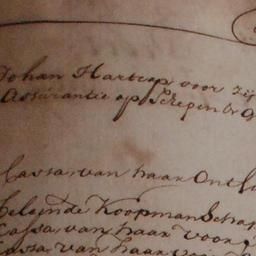 Johan Hartcop voor zij
Assurantie op Schepen &
Cassa van haar Ontf
beleinde Koopmanschap
Cassa van haar voorg
Cassa van haar